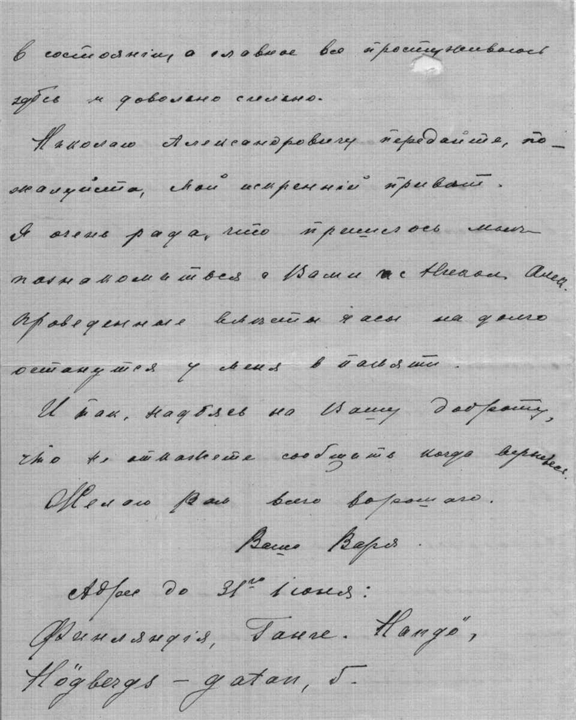 в состоянiи, а главное все простуживаюсь
здѣсь и довольно сильно.
Николаю Александровичу передайте, по-
жалуйста, мой искреннiй привѣт.
Я очень рада, что пришлось мнѣ
познакомиться с Вами и с Никол. Алек.
Проведенные вмѣстѣ часы на долго
останутся у меня в памяти.
И так, надѣясь на Вашу доброту,
что не откажете сообщить когда вернетесь.
Желаю Вам всего хорошаго.
Ваша Варя.
Адрес до 31го iюня:
Финляндiя, Ганге. Hangö,
Högbergs – gatan, 5.